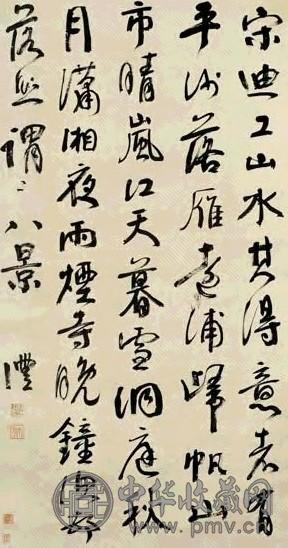 宋迪工山水其得意者有
平沙落雁遠浦歸帆山
市晴嵐江天暮雪洞庭秋
月瀟湘夜雨煙寺晚鐘漁邨
落照謂之八景 灃
中华收藏网
www.pmv.cn